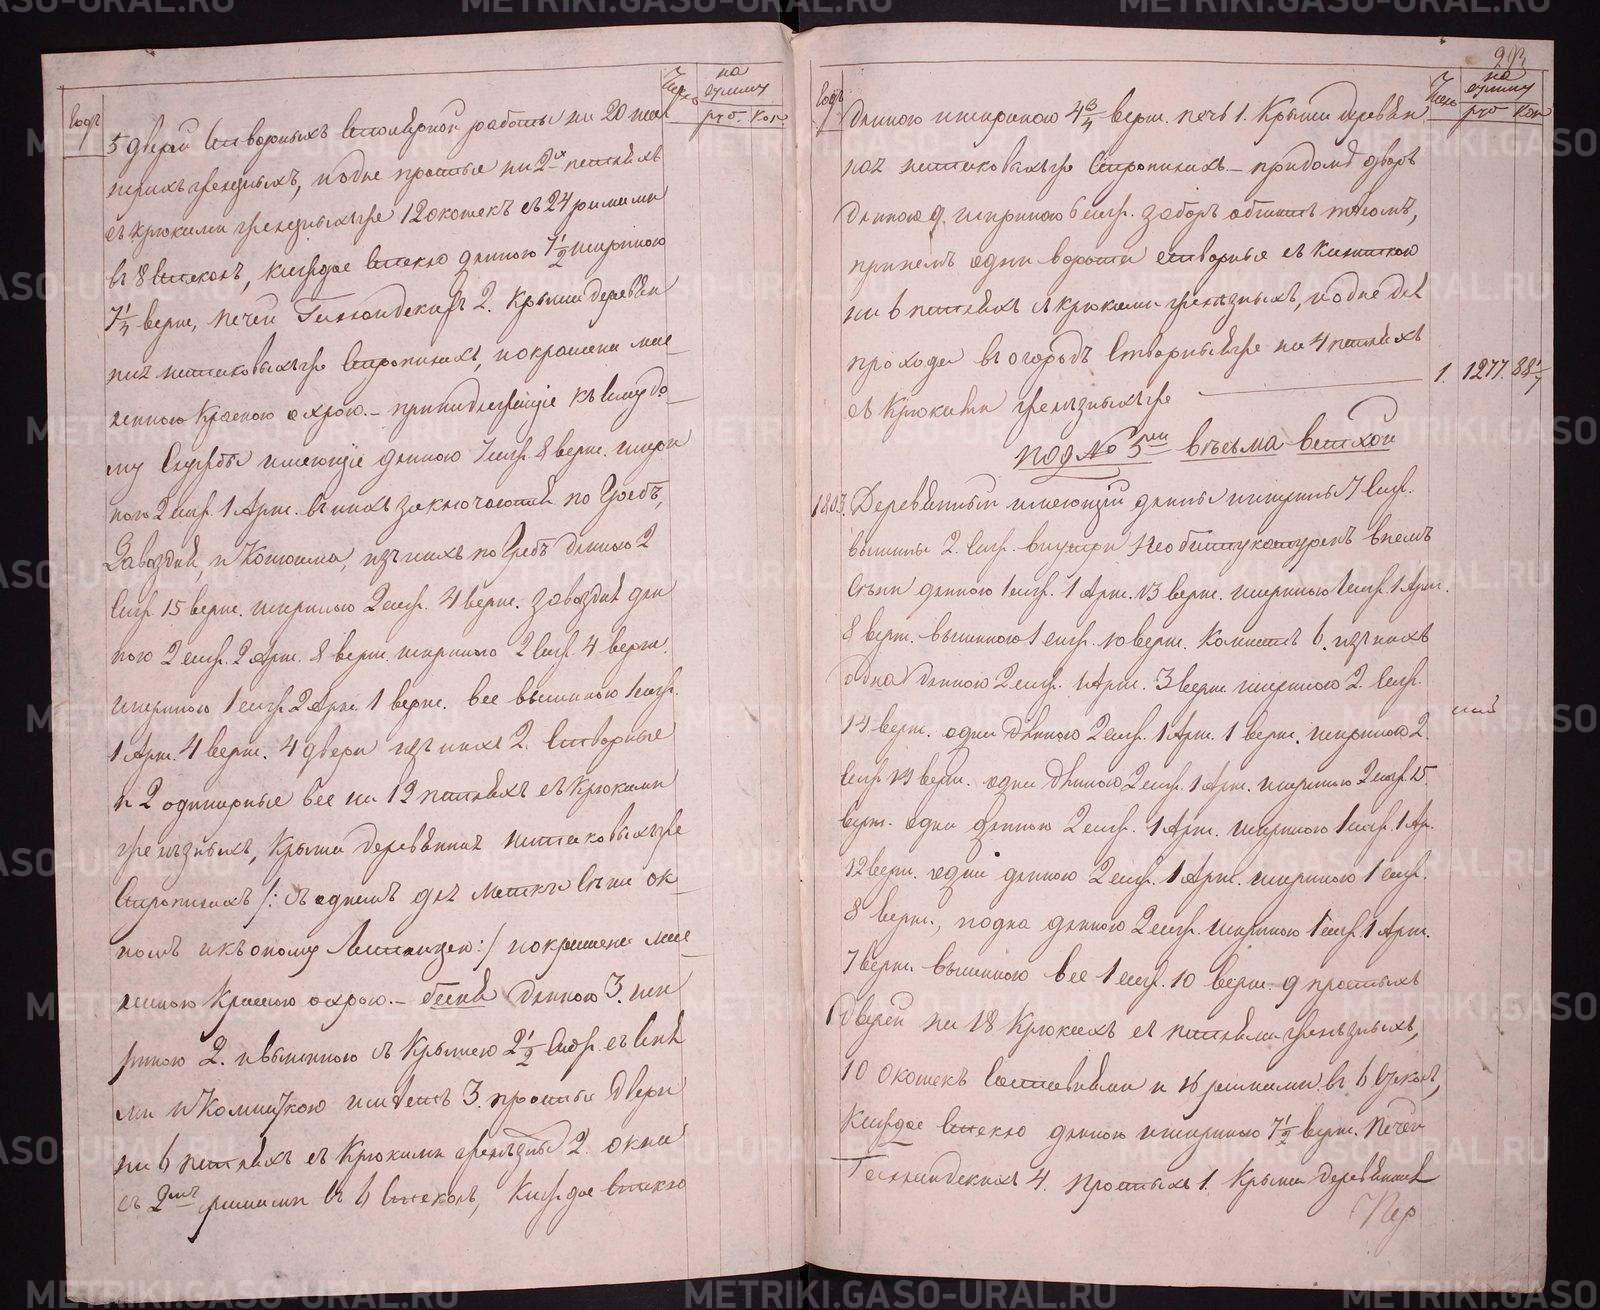 Годъ
Число
на сумму
руб. Коп.
5 дверей створныхъ столярной работы на 20 пет
ляхъ железныхъ, и одне простыя на 2хъ петляхъ
съ крюками железными же 12 окошекъ съ 24 рамами
въ 8 стеколъ, каждое стекло длиною 7½ шириною
7¼ верш, печей Галландскихъ 2. Крыша деревян
ная на таковыхъ же стропилахъ, покрашена мас-
ленною Красною охрою. – принадлежащіе къ сему до-
му Службы имеющіе длиною 7 саж. 8 верш. шири
ною 2 саж. 1 Арш. въ нихъ заключаются погребъ,
Завозня, и Конюшна, изъ нихъ погребъ длиною 2
Саж. 15 верш. шириною 2 саж. 4 верш. завозня дли
ною 2 саж. 2 Арш. 8 верш. шириною 2 саж. 4 верш.
шириною 1 саж. 2 Арш. 1 верш. все вышиною 1 саж.
1 Арш. 4 верш. 4 двери изъ нихъ 2. створные
и 2 одинарные все на 12 петляхъ съ Крюками
железныхъ, Крыша деревянная на таковыхъ же
Стропилахъ /: съ однемъ
покрашена мас-
ленною Красною охрою. – баня длиною 3. ши
риною 2. и вышиною съ Крышею 2½ Саж. съ сеня
ми и Комнаткою имеетъ 3. простыя двери
на 6 петляхъ съ Крюками железныя 2. окна
съ 2мя рамами въ 6 стеколъ, Каждое стекло
293
Годъ
Число
на сумму
руб Коп
длиною и шириною 4¾ верш. печь 1. Крыша деревян
ная на таковыхъ же Стропилахъ. – при доме дворъ
длиною 9. шириною 6 саж. заборъ обшитъ тесомъ,
при немъ одни ворота створныя съ Калиткою
на 6 петляхъ съ крюками железныхъ, и одне для
прохода въ огородъ Створныя же на 4 петляхъ
съ Крюками железныхъ же 1. 1277. 88 1/7
под № 5мъ весьма ветхой
1803. Деревянный имеющій длины и ширины 7 Саж.
вышины 2. Саж. внутри Необштукатуренъ в немъ
Сени длиною 1 саж. 1 Арш. 13 верш. шириною 1 саж. 1 Арш.
8 верш. вышиною 1 саж. 10 верш. Комнатъ 6. изъ нихъ
одна длиною 2 саж. 1 Арш. 3 верш шириною 2. Саж.
14 верш. одна длиною 2 саж. 1 Арш. 1 верш. шириною 2.
Саж 14 верш. одна длиною 2 саж. 1 Арш. шириною 2 саж. 15
верш. одна длиною 2 саж. 1 Арш. шириною 1 саж. 1 Ар.
12 верш. одна длиною 2 саж. 1 Арш. шириною 1 саж.
8 верш., и одна длиною 2 саж. шириною 1 саж. 1 Арш.
7 верш. вышиною все 1 саж. 10 верш. 9 простыхъ
дверей на 18 Крюкахъ съ петлями железныхъ,
10 окошекъ съ ставнями и 16 рамами въ 6 стеколъ,
Каждое стекло длиною и шириною 7½ верш. Печей
Галландскихъ 4. Простыхъ 1. Крыша деревянная